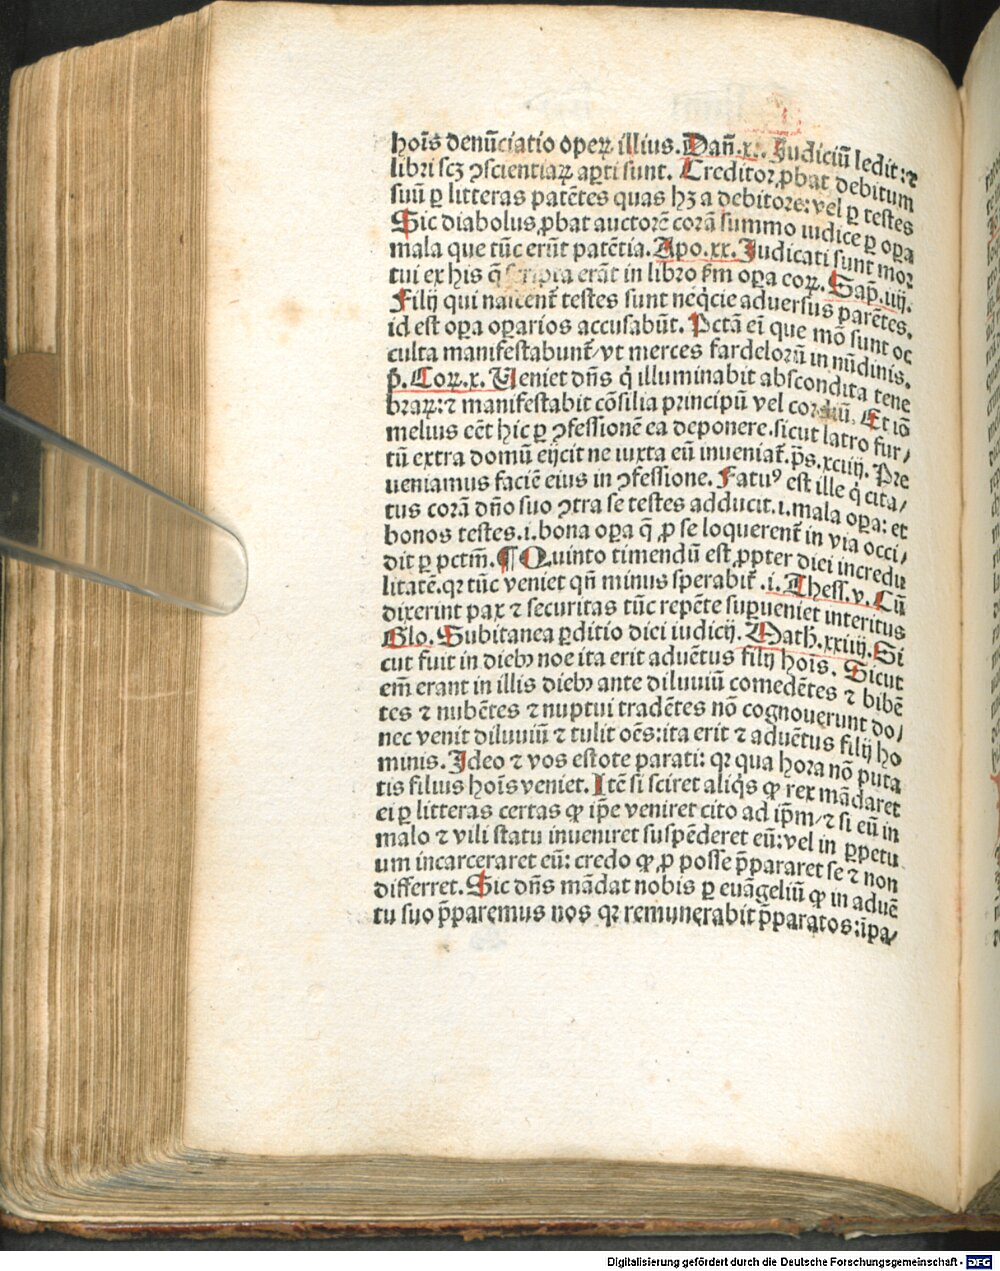 hoīs denūciatio operꝝ illius. Dan̄.x.. Judiciū sedit: ⁊
libri scꝫ ꝯscientiaꝝ aꝑti sunt. Creditor ꝓbat debitum
suū ꝑ litteras patētes quas hꝫ a debitore: vel ꝑ testes
Sic diabolus ꝓbat auctorē corā summo iudice ꝑ oꝑa
mala que tūc erūt patētia. Apo.xx. Judicati sunt mor
tui ex his q̄ scripta erāt in libro ẜm oꝑa coꝝ. Sap̄.iiij.
Filij qui nascent̄ testes sunt neq̄cie aduersus parētes.
id est oꝑa oꝑarios accusabūt. Pctā em̄ que mō sunt oc
culta manifestabunt̄/vt merces fardeloꝝ in nūdinis.
p̄. Coꝝ.x. Veniet dn̄s q̇ illuminabit abscondita tene
braꝝ: ⁊ manifestabit cōsilia principū vel cordiū. Et iō
melius eēt hic ꝑ ꝯfessionē ea deponere. sicut latro fur/
tū extra domū eijcit ne iuxta eū inueniat̄. p̄s.xciiij. Pre
ueniamus faciē eius in ꝯfessione. Fatuꝰ est ille q̇ cita/
tus corā dn̄o suo ꝯtra se testes adducit.i.mala oꝑa: et
bonos testes.i.bona oꝑa q̄ ꝓ se loquerent̄ in via occi/
dit ꝑ pctm̄. ¶ Quinto timendū est ꝓpter diei incredu
litatē. qꝛ tūc veniet qn̄ minus sperabit̄ .i. Thess.v. Cū
dixerint pax ⁊ securitas tūc repēte suꝑueniet interitus
Glo. Subitanea ꝑditio diei iudicij. Math̄.xxiiij. Si
cut fuit in diebꝫ noe ita erit aduētus filij hoīs. Sicut
em̄ erant in illis diebꝫ ante diluuiū comedētes ⁊ bibē
tes ⁊ nubētes ⁊ nuptui tradētes nō cognouerunt do/
nec venit diluuiū ⁊ tulit oēs: ita erit ⁊ aduētus filij ho
minis. Ideo ⁊ vos estote parati: qꝛ qua hora nō puta
tis filius hoīs veniet. Itē si sciret aliq̇s ꝙ rex mādaret
ei ꝑ litteras certas ꝙ ip̄e veniret cito ad ip̄m/⁊ si eū in
malo ⁊ vili statu inueniret suspēderet eū: vel in ꝑpetu
um incarceraret eū: credo ꝙ ꝓ posse p̄pararet se ⁊ non
differret. Sic dn̄s mādat nobis ꝑ euāgeliū ꝙ in aduē
tu suo p̄paremus nos qꝛ remunerabit p̄paratos: īpa/
Digitalisierung gefördert durch die Deutsche Forschungsgemeinschaft - DFG